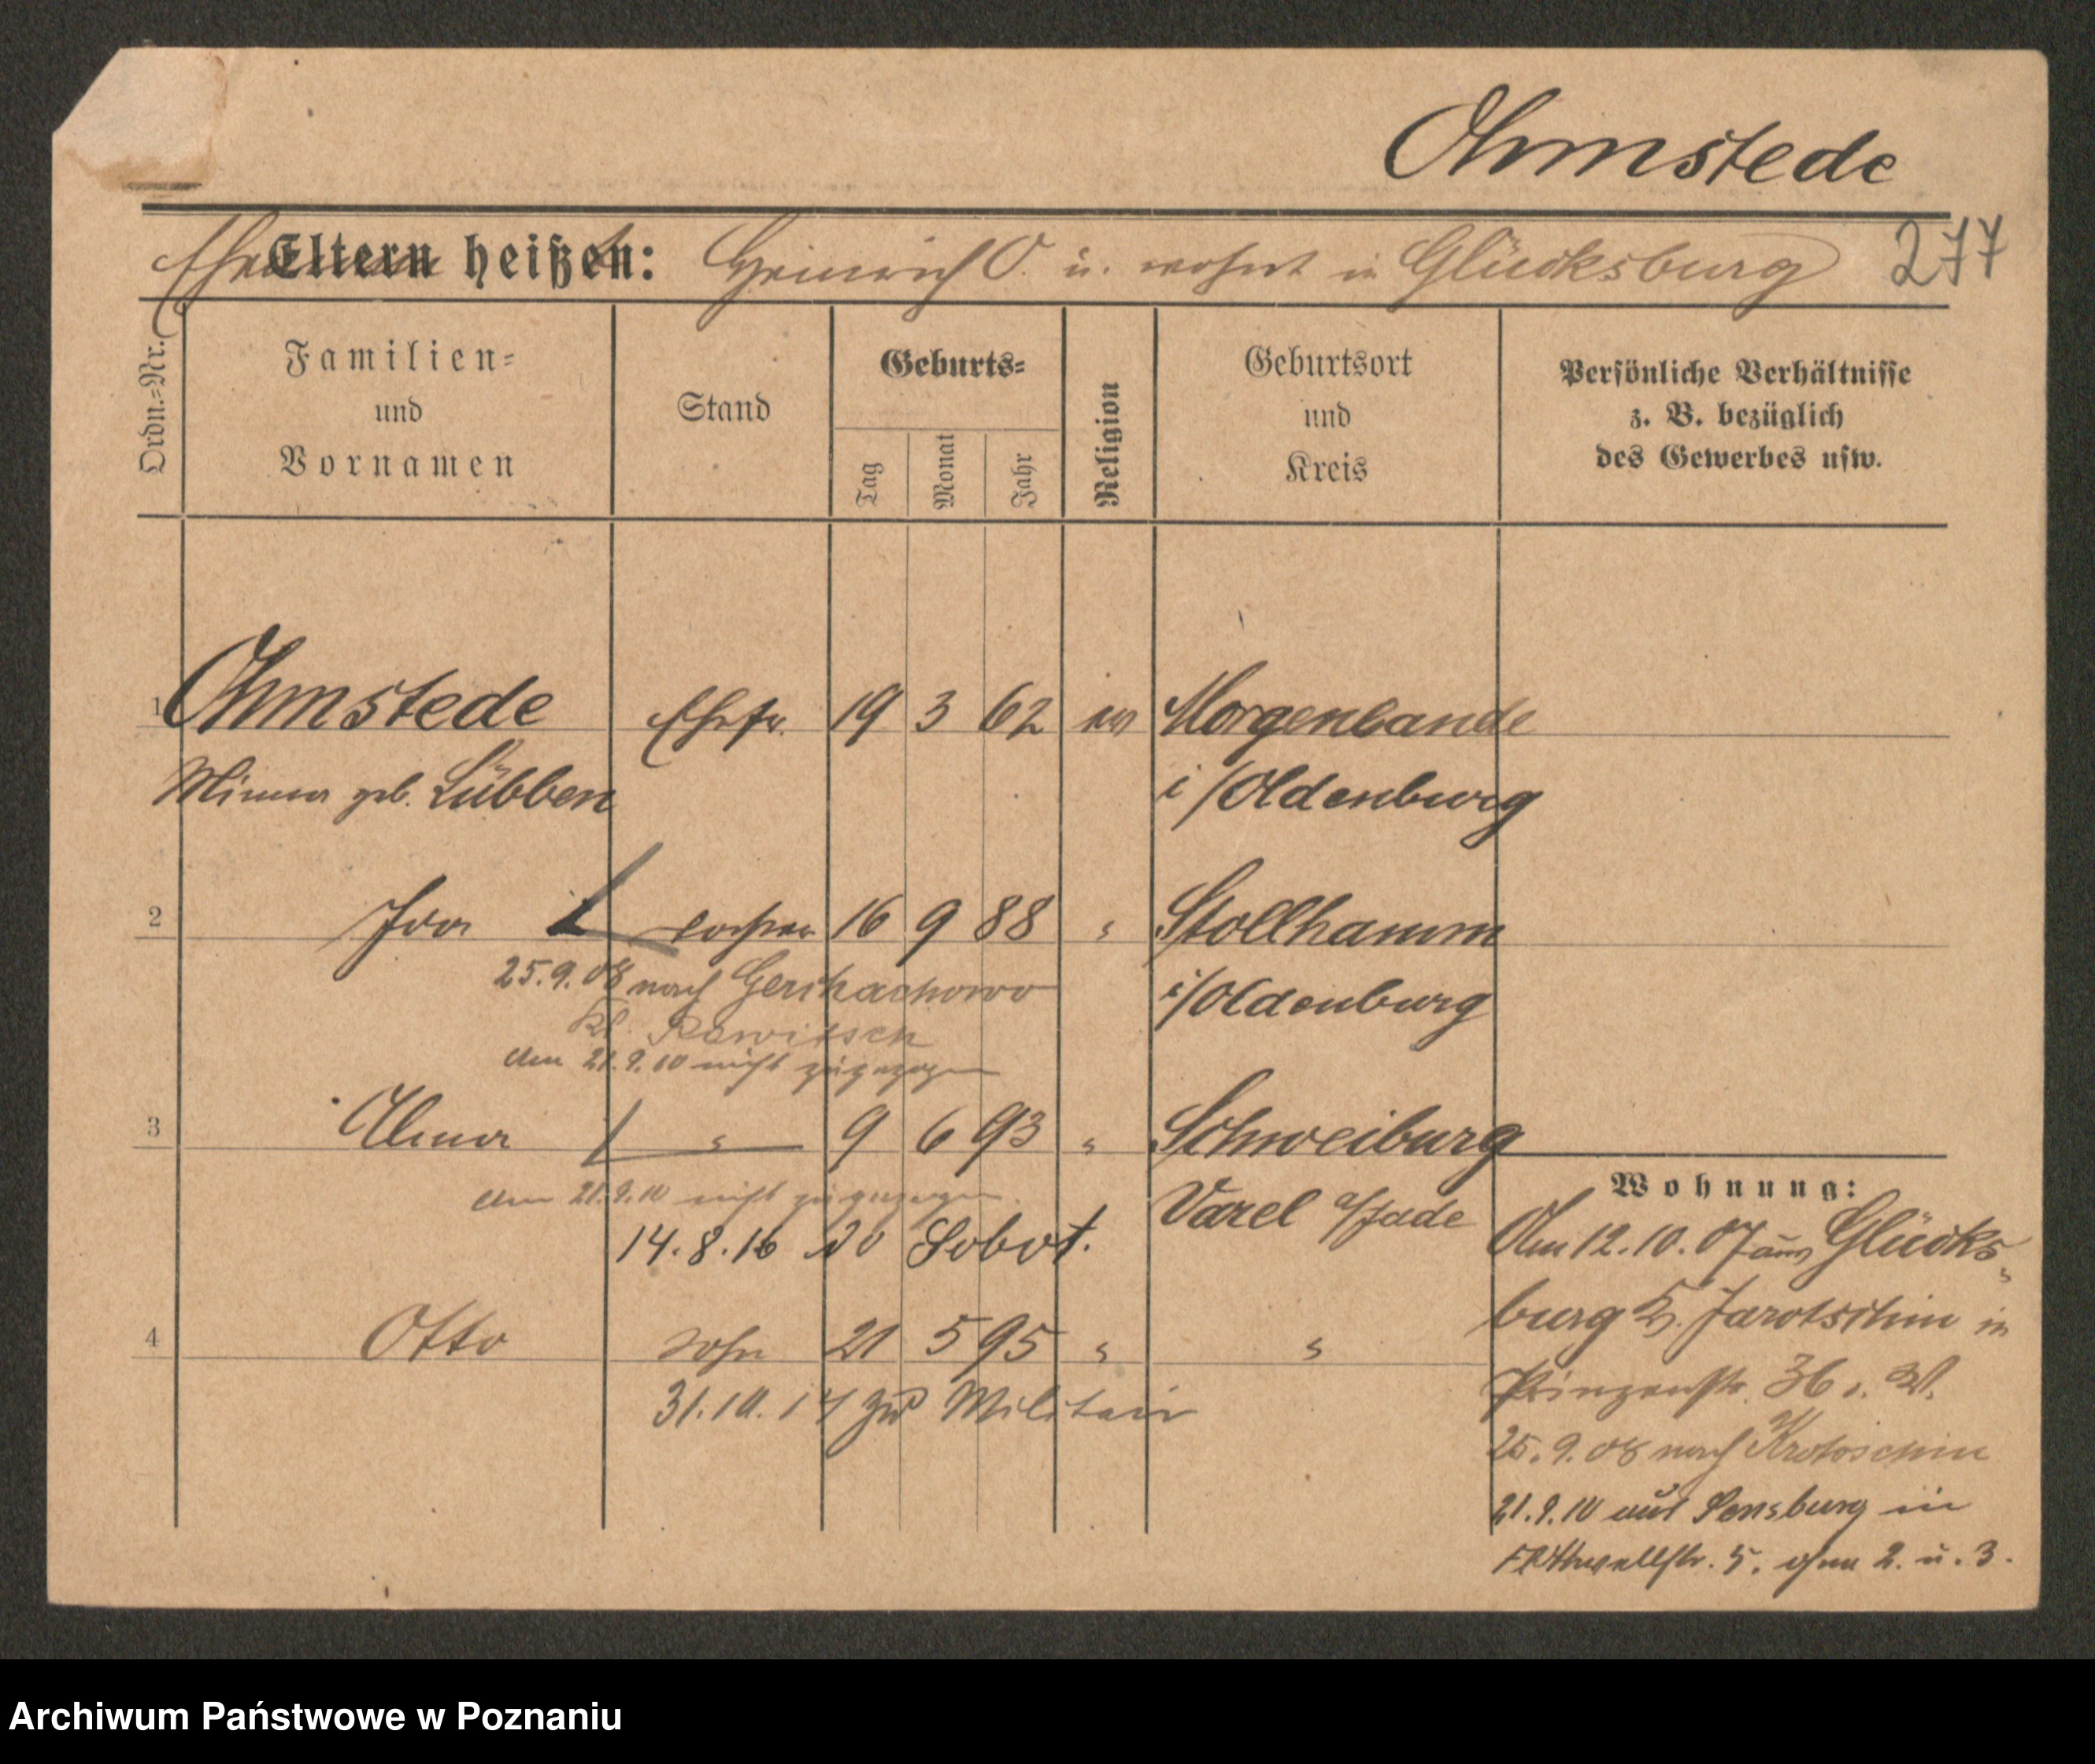 Ohmstede
Ehemann Eltern heißen: Heinrich O. u. wohnt in Glücksburg 277
Ordn.=Nr. Familien= und Vornamen Stand Geburts= Tag Monat Jahr Religion Geburtsort und Kreis Persönliche Verhältnisse z. B. bezüglich des Gewerbes usw.
1 Ohmstede Ehefr. 19 3 62 ev Morgenlande
Minna geb. Lübben i/Oldenburg
2 Ida Tochter 16 9 88 " Stollhamm
25.9.08 nach i/Oldenburg
Rawitsch
Am 21.9.10 nicht zugezogen
3 Alma " 9 6 93 " Schweiburg
Am 21.9.10 nicht zugezogen. Varel a/Jade
14.8.16 Sobot.
4 Otto Sohn 21 5 95 " "
31.10.17 zum Militair
Wohnung:
Am 12.10.07 aus Glücks-
burg Kr. Jarotschin in
Prinzenstr. 36 b. W.
25.9.08 nach Krotoschin
21.9.10 aus Sensburg in
5. ohne 2. u. 3.
Archiwum Państwowe w Poznaniu